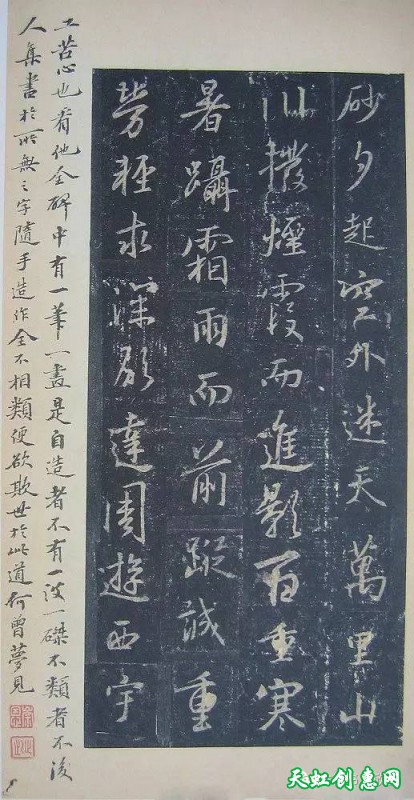 砂夕起空外迷天萬里山
川撥煙霞而進影百重寒
暑躡霜雨而前蹤誠重
勞輕求深願達周遊西宇
工苦心也看他全碑中有一筆一畫是自造者不有一波一磔不類者不後
人集書於所無之字隨手造作全不相類便欲欺世於此道何曾夢見
天虹创意网